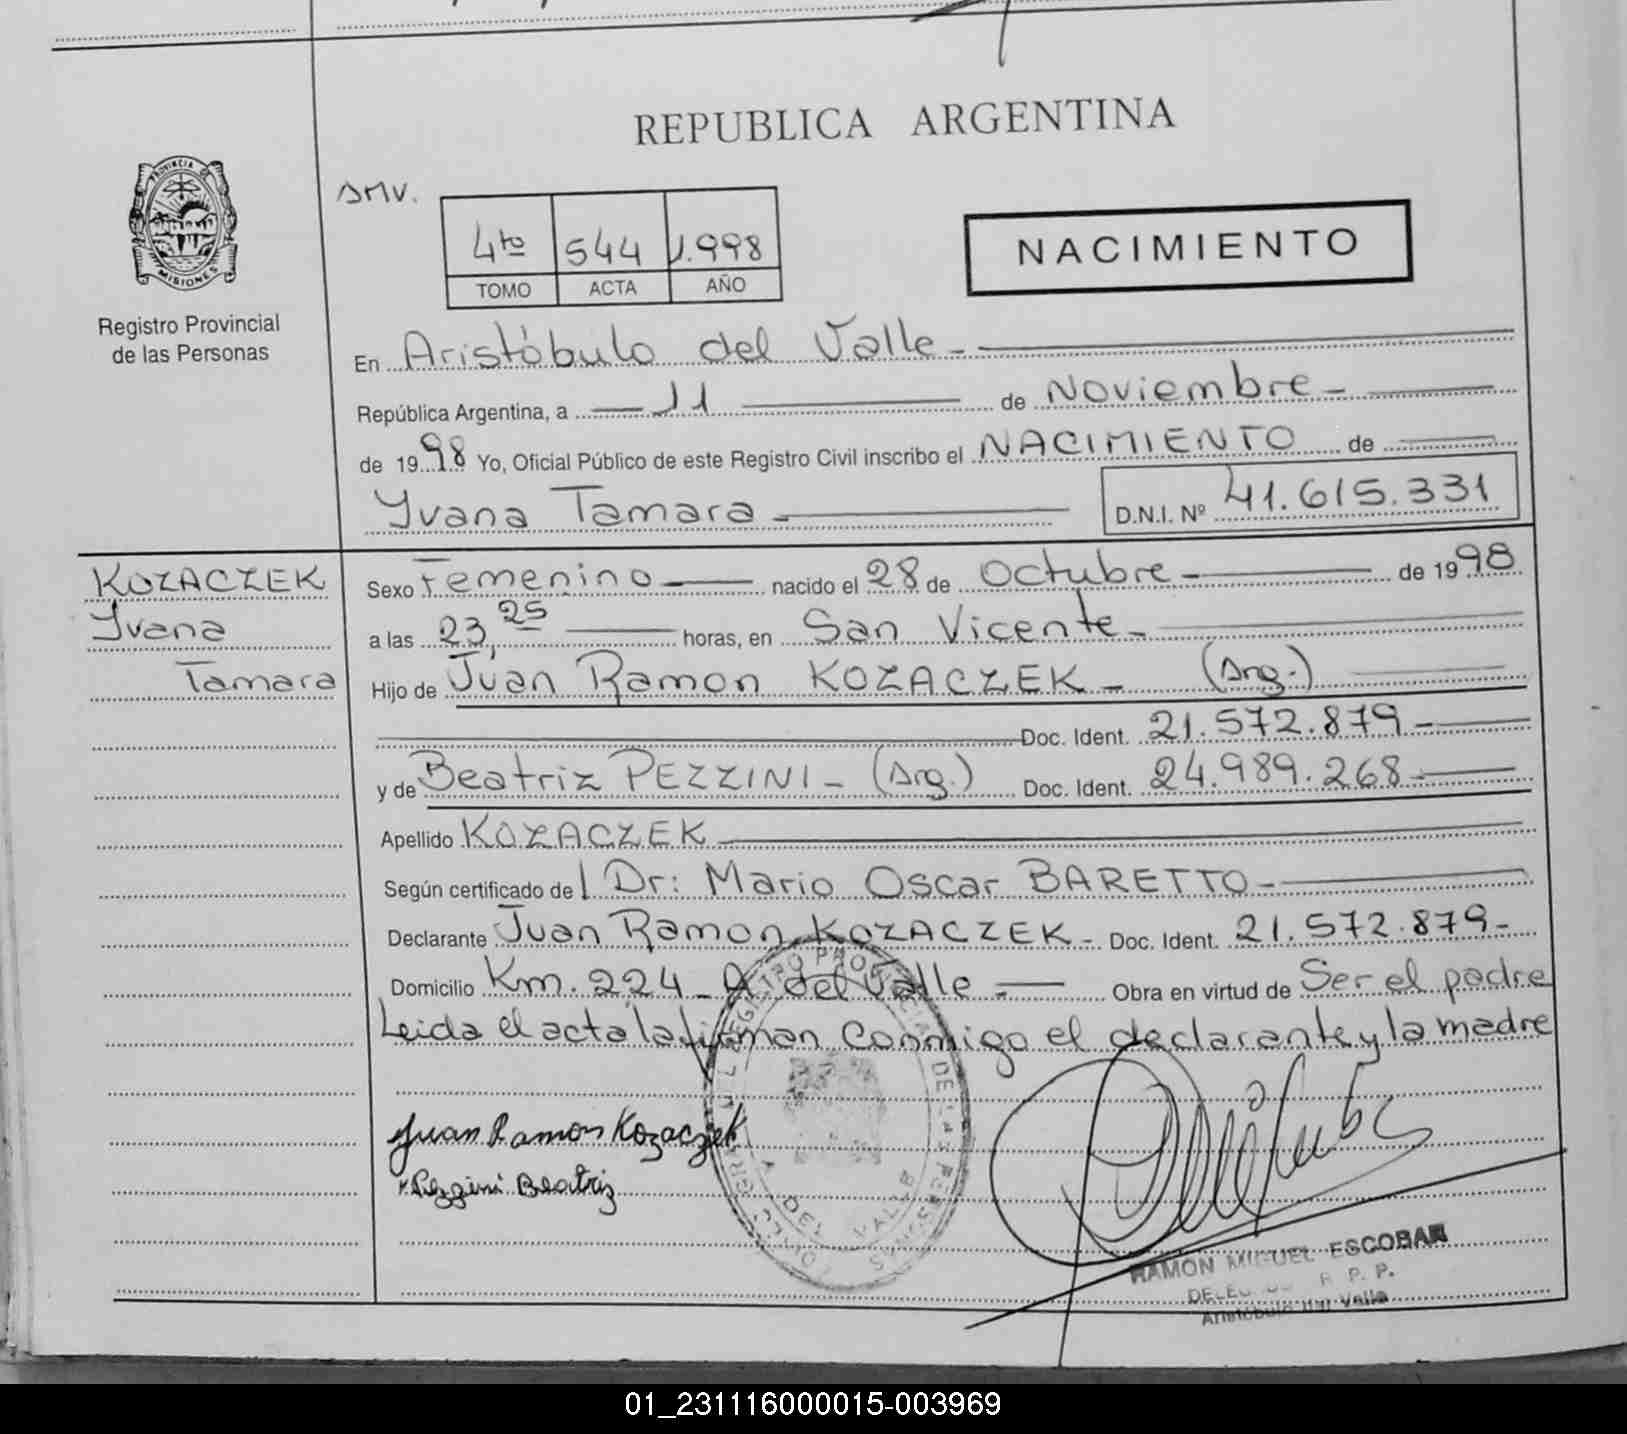 REPUBLICA ARGENTINA
PROVINCIA DE
MISIONES
Registro Provincial
de las Personas
SMV.
4to 544 1.998
TOMO ACTA AÑO
NACIMIENTO
En Aristóbulo del Valle-
República Argentina, a 11 de Noviembre-
de 1998 Yo, Oficial Público de este Registro Civil inscribo el NACIMIENTO de
Yvana Tamara - D.N.I. Nº 41.615.331
KOZACZEK
Yvana
Tamara
Sexo Femenino nacido el 28 de Octubre- de 1998
a las 23,25 horas, en San Vicente-
Hijo de Juan Ramon KOZACZEK- (Arg.)
Doc. Ident. 21.572.879-
y de Beatriz PEZZINI- (Arg.) Doc. Ident. 24.989.268-
Apellido KOZACZEK
Según certificado del Dr: Mario Oscar BARETTO-
Declarante Juan Ramon KOZACZEK- Doc. Ident. 21.572.879-
Domicilio Km. 224- A. del Valle- Obra en virtud de Ser el padre
Leida el acta la firman conmigo el declarante y la madre
Juan Ramon Kozaczek
Pezzini Beatriz
REGISTRO PROVINCIAL DE LAS PERSONAS
A. DEL VALLE
RAMON MIGUEL ESCOBAR
R. P. P.
Aristóbulo del Valle
01_231116000015-003969